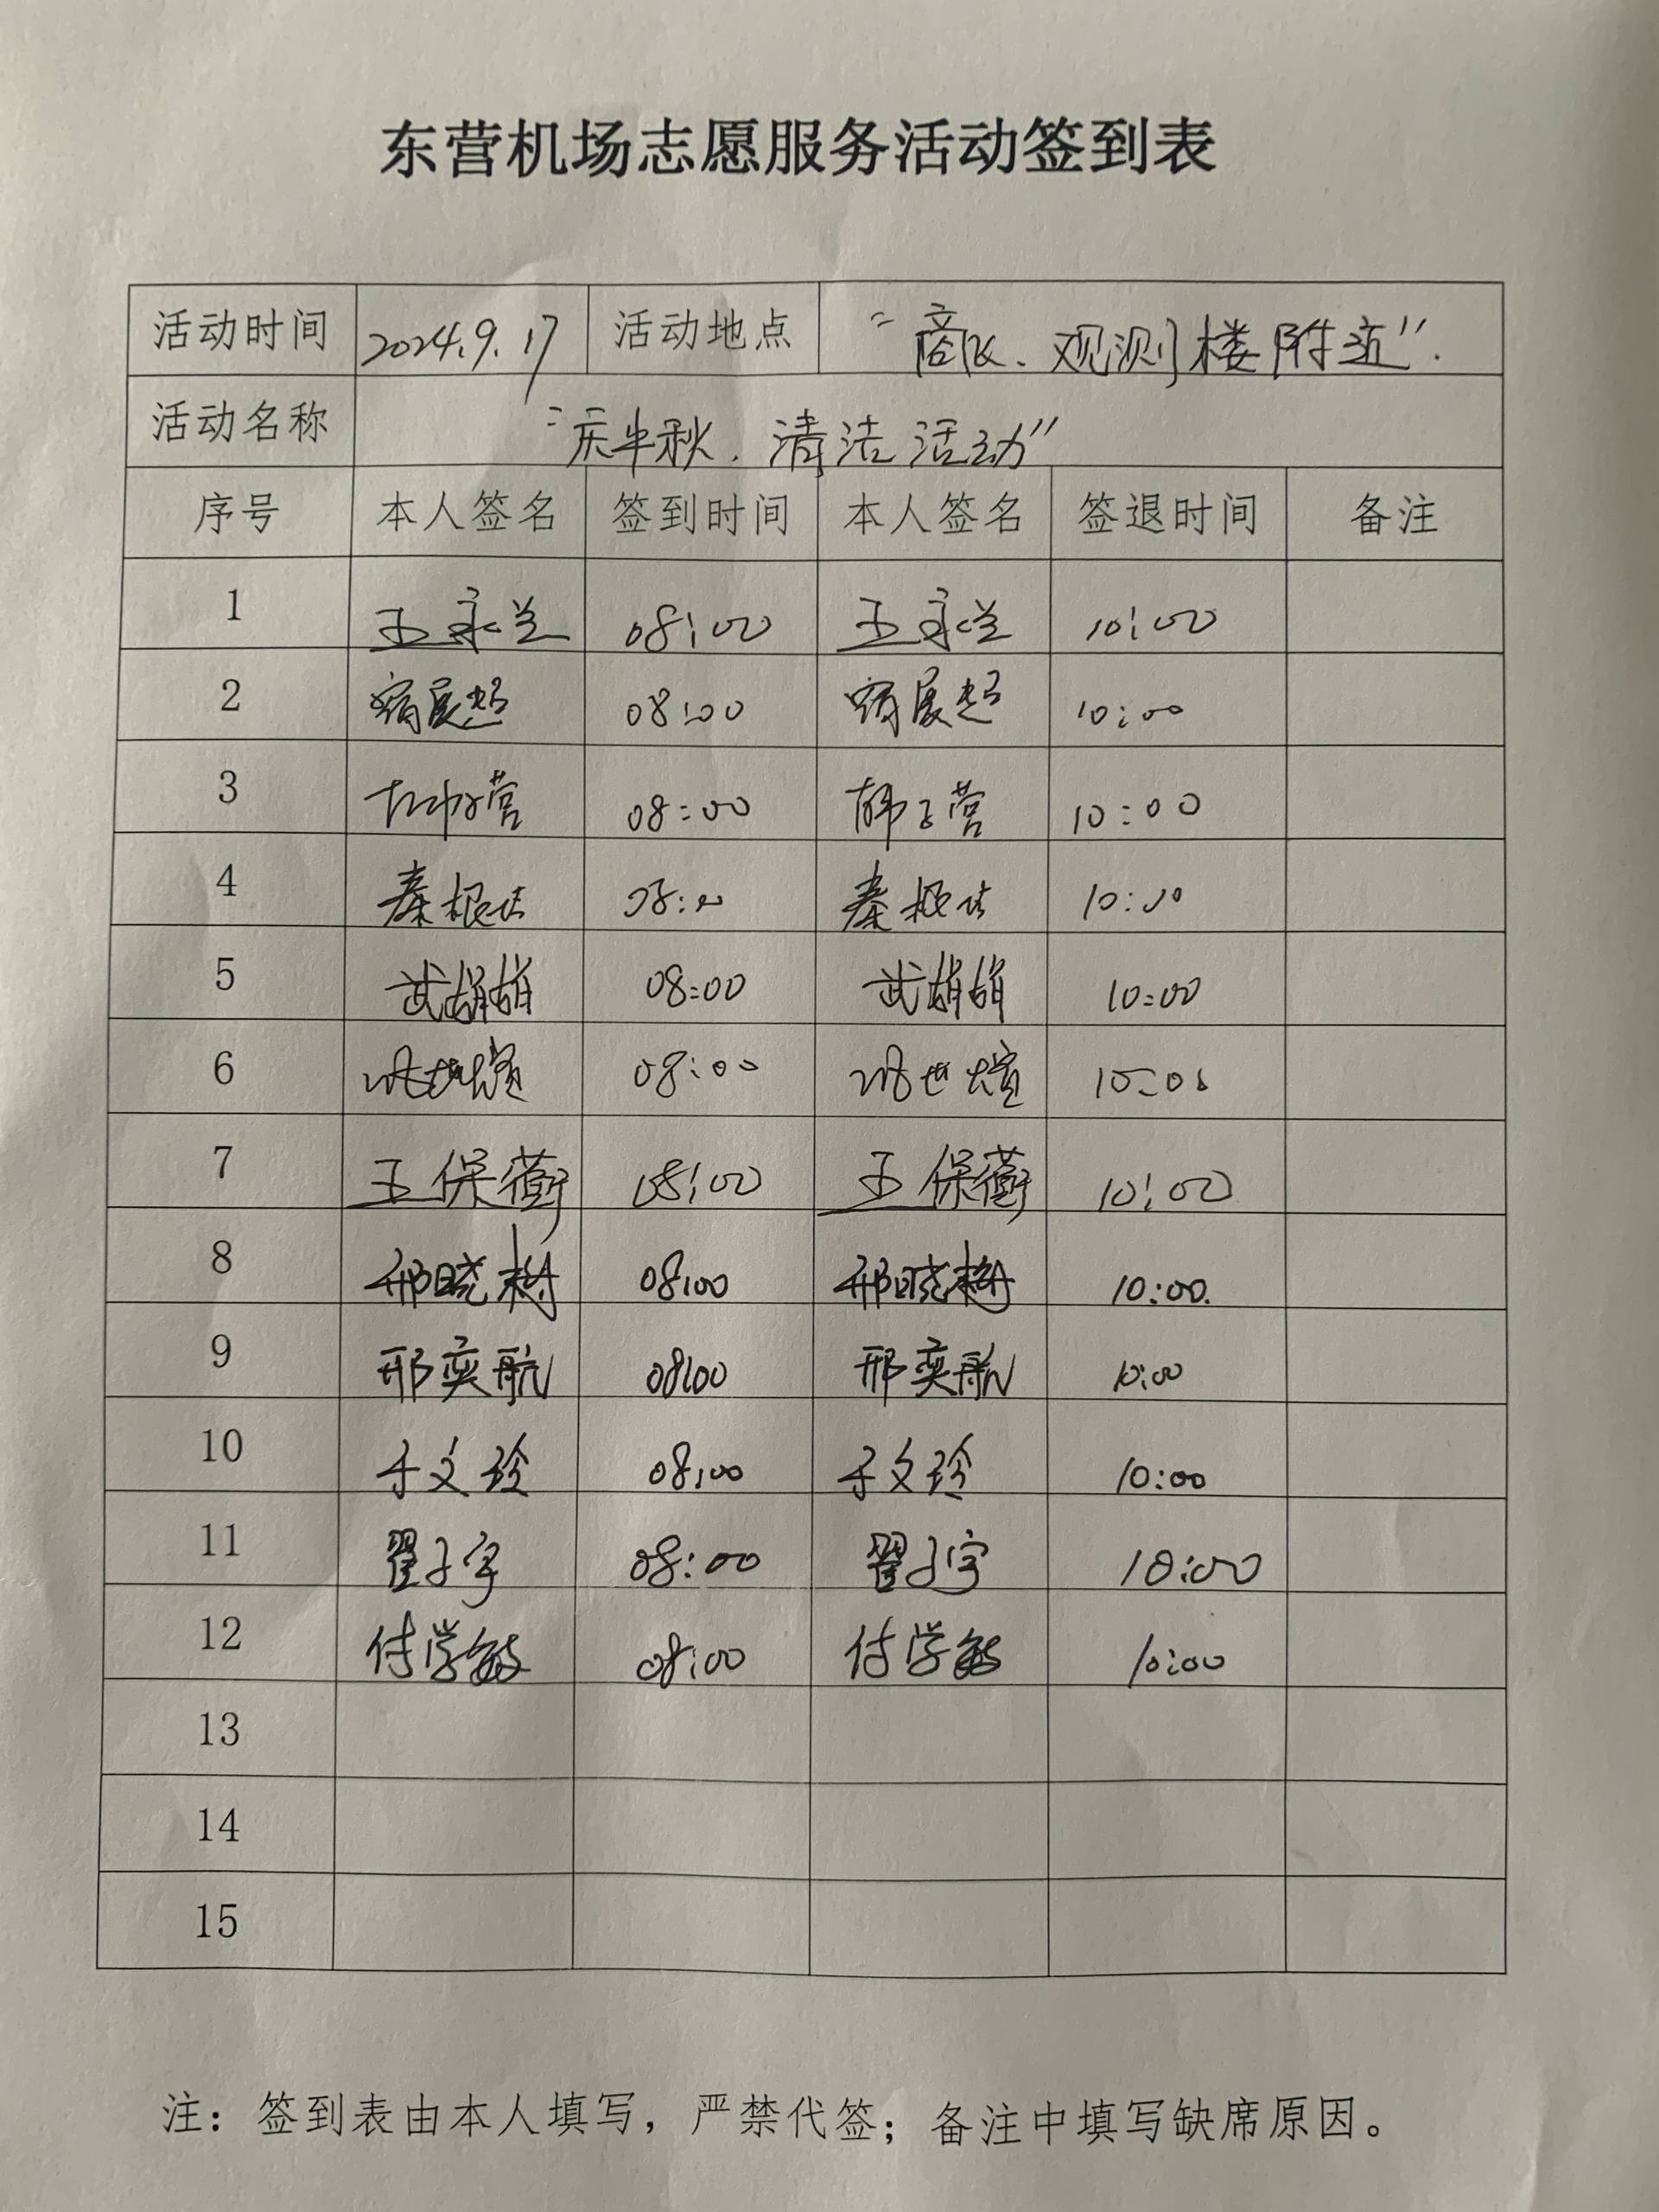 东营机场志愿服务活动签到表
活动时间 2024.9.17 活动地点 “商飞、观测楼附近”.
活动名称 “庆中秋.清洁活动”
序号 本人签名 签到时间 本人签名 签退时间 备注
1 王永兰 08:00 王永兰 10:00
2 展超 08:00 展超 10:00
3 韩子营 08:00 韩子营 10:00
4 秦根 08:00 秦根 10:00
5 武娟娟 08:00 武娟娟 10:00
6 世煊 08:00 世煊 10:00
7 王保蘅 08:00 王保蘅 10:00
8 邢晓树 08:00 邢晓树 10:00.
9 邢奕航 08:00 邢奕航 10:00
10 于文玲 08:00 于文玲 10:00
11 翟子宇 08:00 翟子宇 10:00
12 付学敏 08:00 付学敏 10:00
13
14
15
注：签到表由本人填写，严禁代签；备注中填写缺席原因。